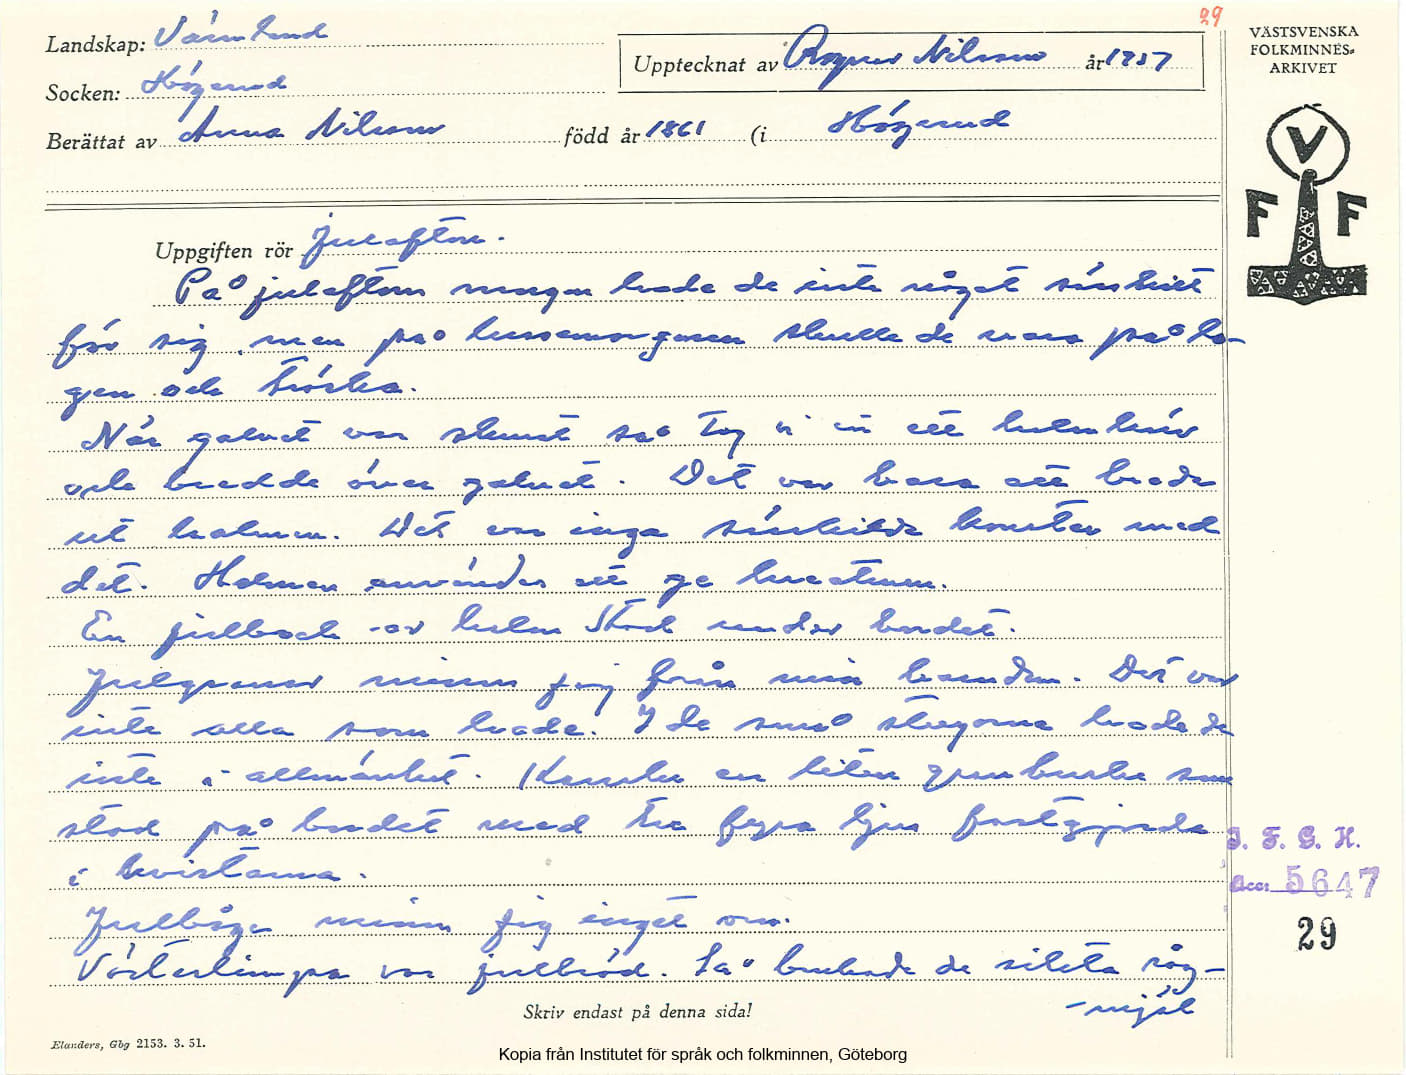 29
Landskap: Värmland
Upptecknat av Ragnar Nilsson år 1957
VÄSTSVENSKA
FOLKMINNES-
ARKIVET
Socken: Högerud
Berättat av Anna Nilsson född år 1861 (i Högerud
V
F F
Uppgiften rör Julafton.
På julaftons morgon hade de inte något särskilt
för sig, men på lussemorgonen skulle de vara på lo-
gen och tröska.
När golvet var skurat så tog vi in ett halmkärv
och bredde över golvet. Det var bara att breda
ut halmen. Det var inga särskilda konster med
det. Halmen användes att ge kreaturen.
En julbock av halm stod under bordet.
Julgranar minns jag från min barndom. Det var
inte alla som hade. I de små stugorna hade de
inte i allmänhet. Kanske en liten granbuske som
stod på bordet med tre fyra ljus fastgjorda
i kvistarna.
I. F. G. H.
Acc: 5647
29
Julhög minns jag inget om.
Vörterlimpa var julbröd. Så brukade de sikta råg-
-mjöl
Skriv endast på denna sida!
Elanders, Gbg 2153. 3. 51.
Kopia från Institutet för språk och folkminnen, Göteborg